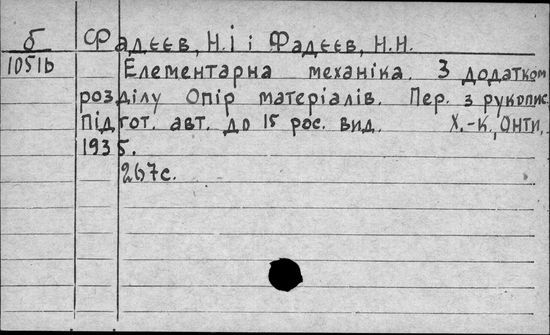 б Фадєєв, Н.І і Фадєєв, Н.Н.
10516 Елементарна механіка. З додатком
розділу Опір матеріалів. Пер. з рукопис.
Підгот. авт. до 15 рос. вид. Х.-К., ОНТИ,
1935.
267с.